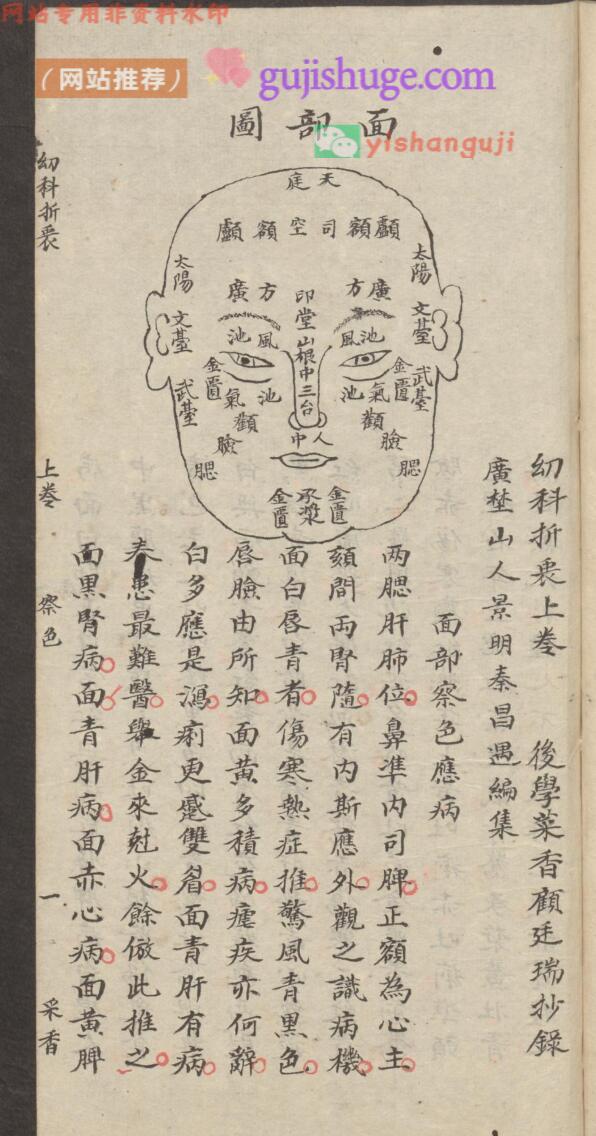 网站专用非资料水印
(网站推荐)
gujishuge.com
yishanguji
面部圖
天庭
顱額司空額顱
太陽
太陽
廣方
方廣
印堂山根中三台
文臺
文臺
池風
風池
金匱
金匱
武臺
武臺
氣池
氣池
顴
顴
臉
臉
人中
腮
腮
金匱
承漿
金匱
幼科折衷上卷 後學菜香顧廷瑞抄錄
廣埜山人景明秦昌遇編集
面部察色應病
两腮肝肺位鼻準内司脾正額為心主
頦間両腎隨有内斯應外觀之識病機
面白唇青者傷寒熱症推驚風青黑色
唇臉由所知面黄多積病瘧疾亦何辭
白多應是瀉痢更蹙雙眉面青肝有病
春患最難醫舉金來尅火餘倣此推之
面黑腎病面青肝病面赤心病面黄脾
幼科折衷
上卷
察色
一
采香